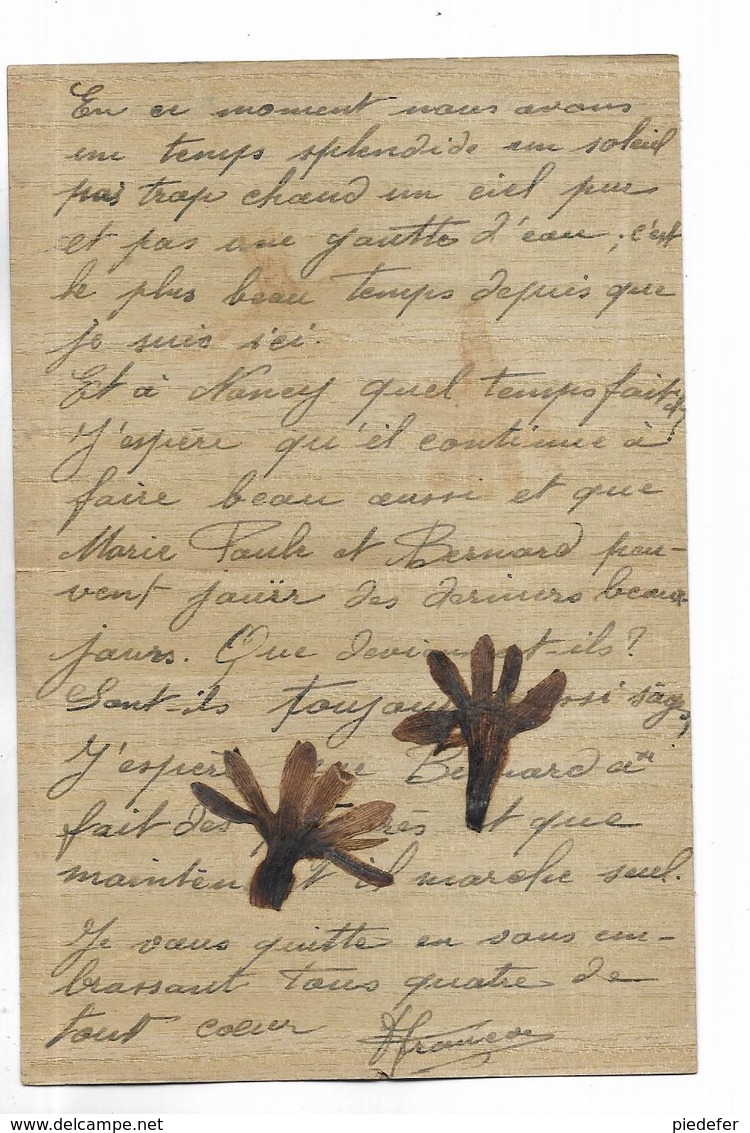 En ce moment nous avons
un temps splendide un soleil
pas trop chaud un ciel pur
et pas une goutte d'eau ; c'est
le plus beau temps depuis que
je suis ici.
Et à Nancy quel temps fait-il?
J'espère qu'il continue à
faire beau aussi et que
Marie Paule et Bernard peu-
vent jouir des derniers beaux
jours. Que deviennent-ils?
Sont-ils toujours aussi sages
J'espère que Bernard a
fait des progrès et que
maintenant il marche seul.
Je vous quitte en vous em-
brassant tous quatre de
tout coeur
piedefer
www.delcampe.net